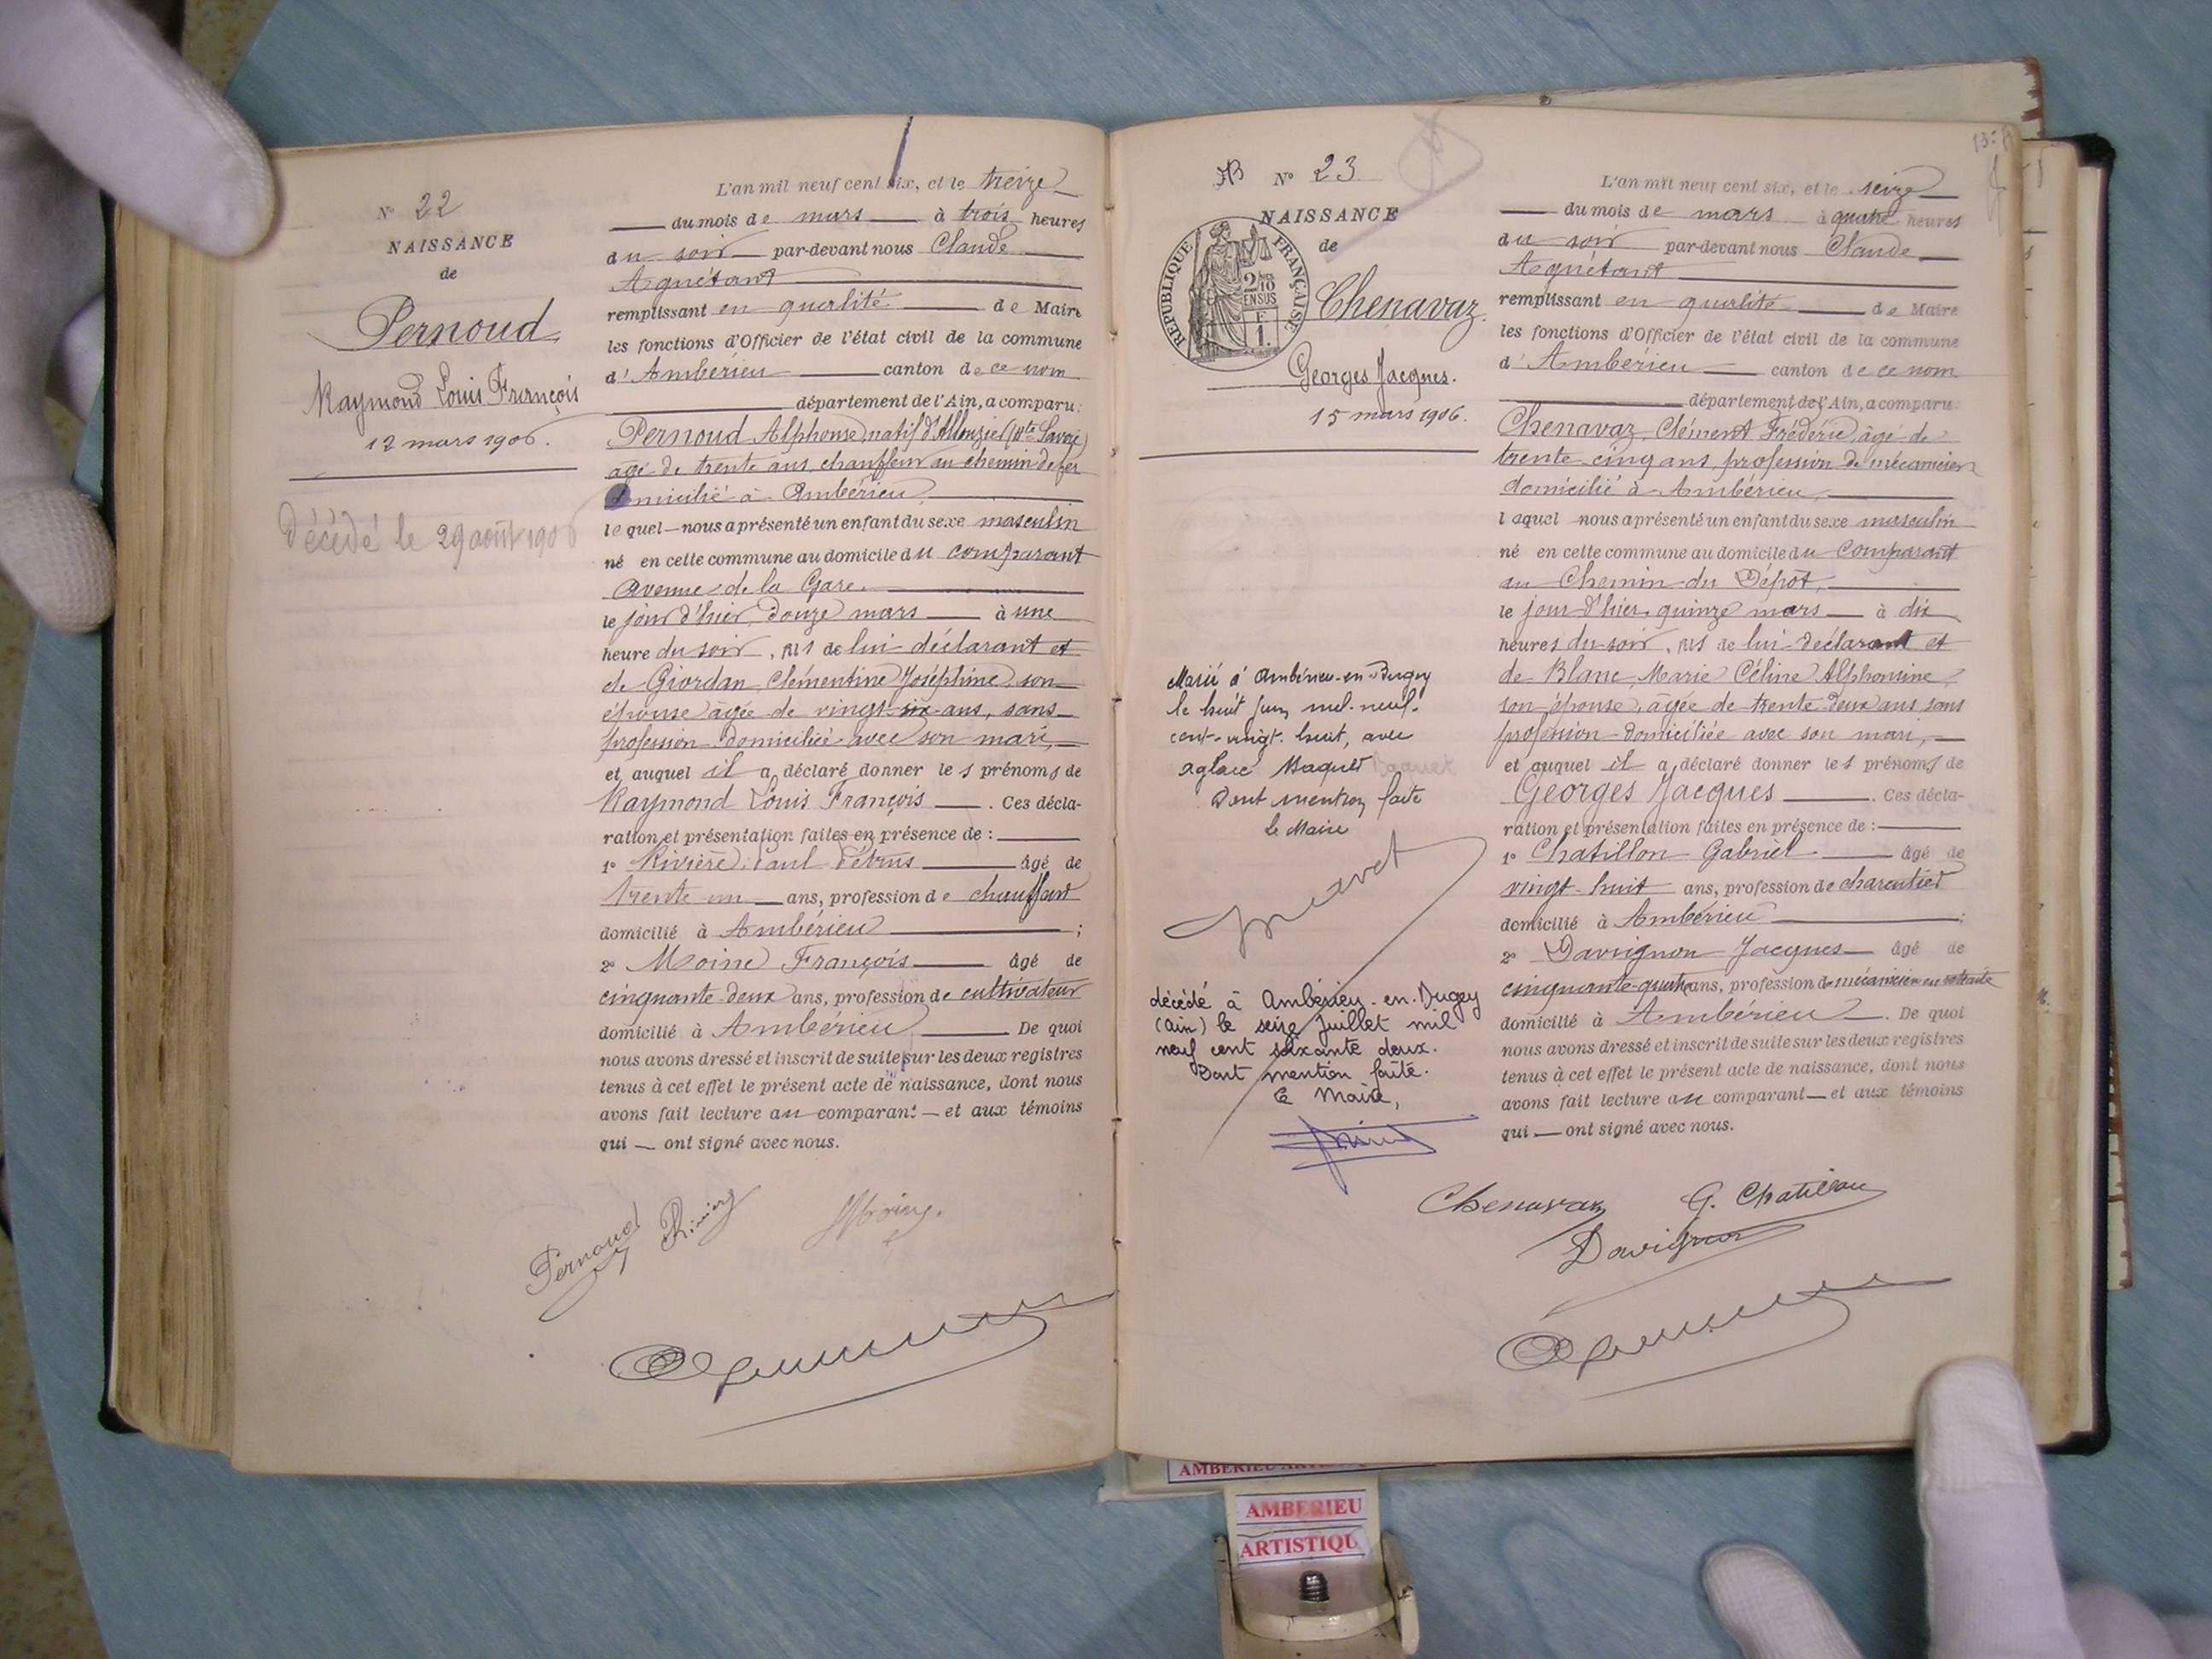 Nº 22
NAISSANCE
de
Pernoud
Raymond Louis François
12 mars 1906.
Décédé le 29 août 1906
L'an mil neuf cent six, et le treize
du mois de mars à trois heures
du soir par-devant nous Claude
Aguétant
remplissant en qualité de Maire
les fonctions d'Officier de l'état civil de la commune
d'Ambérieu canton de ce nom
département de l'Ain, a comparu:
Pernoud Alphonse, natif d'Allonzier (Hte Savoie)
âgé de trente ans, chauffeur au chemin de fer
domicilié à Ambérieu
lequel nous a présenté un enfant du sexe masculin
né en cette commune au domicile du comparant
avenue de la Gare.
le jour d'hier, douze mars à une
heure du soir, fils de lui déclarant et
de Giordan Clémentine Joséphine, son
épouse âgée de vingt-six ans, sans
profession domiciliée avec son mari,
et auquel il a déclaré donner les prénoms de
Raymond Louis François. Ces décla-
ration et présentation faites en présence de :
1º Rivière, Paul Pétrus âgé de
trente un ans, profession de chauffeur
domicilié à Ambérieu ;
2º Moine François âgé de
cinquante-deux ans, profession de cultivateur
domicilié à Ambérieu De quoi
nous avons dressé et inscrit de suite sur les deux registres
tenus à cet effet le présent acte de naissance, dont nous
avons fait lecture au comparant et aux témoins
qui ont signé avec nous.
Pernoud Rivière Moine
Nº 23
NAISSANCE
de
RÉPUBLIQUE FRANÇAISE
2/10 EN SUS
F
1.
Chenavaz
Georges Jacques.
15 mars 1906.
Marié à Ambérieu-en-Bugey
le huit juin mil-neuf-
cent-vingt-huit, avec
Aglaé Maquet
Dont mention faite
Le Maire
décédé à Ambérieu-en-Bugey
(Ain) le seize juillet mil
neuf cent soixante deux.
Dont mention faite.
Le Maire,
L'an mil neuf cent six, et le seize
du mois de mars à quatre heures
du soir par-devant nous Claude
Aguétant
remplissant en qualité de Maire
les fonctions d'Officier de l'état civil de la commune
d'Ambérieu canton de ce nom
département de l'Ain, a comparu:
Chenavaz, Clément Frédéric, âgé de
trente-cinq ans, profession de mécanicien
domicilié à Ambérieu,
lequel nous a présenté un enfant du sexe masculin
né en cette commune au domicile du comparant
au Chemin du Dépôt,
le jour d'hier, quinze mars à dix
heures du soir, fils de lui déclarant et
de Blanc, Marie Céline Alphonsine,
son épouse, âgée de trente-deux ans sans
profession domiciliée avec son mari,
et auquel il a déclaré donner les prénoms de
Georges Jacques. Ces décla-
ration et présentation faites en présence de :
1º Chatillon Gabriel âgé de
vingt-huit ans, profession de charcutier
domicilié à Ambérieu ;
2º Davignon Jacques âgé de
cinquante-quatre ans, profession de mécanicien en retraite
domicilié à Ambérieu. De quoi
nous avons dressé et inscrit de suite sur les deux registres
tenus à cet effet le présent acte de naissance, dont nous
avons fait lecture au comparant et aux témoins
qui ont signé avec nous.
Chenavaz G. Chatillon
Davignon
AMBERIEU
ARTISTIQU